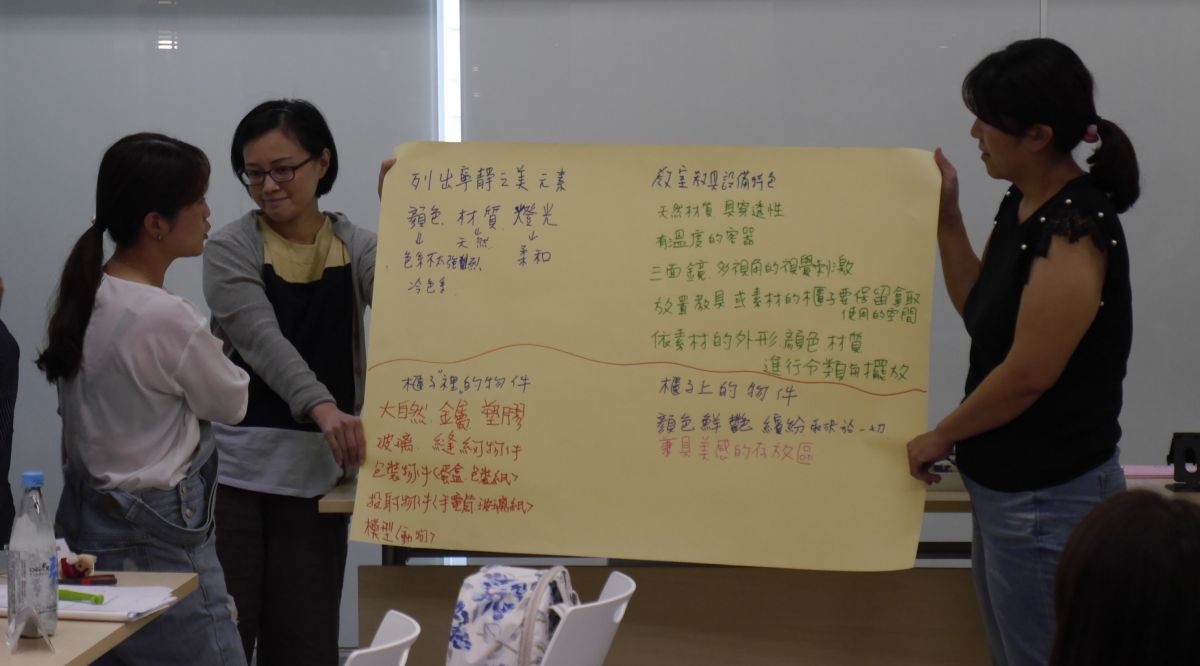 列出寧靜之美元素
顏色、材質、燈光
↓ 天然 ↓
色系不太強烈、 柔和
冷色系
教室教具設備特色
天然材質 具穿透性
有溫度的容器
三面鏡 多視角的視覺刺激
放置教具或素材的櫃子要保留拿取
使用的空間
依素材的外形 顏色 材質
進行分類與擺放
櫃子裡的物件
大自然、金屬、塑膠
玻璃、縫紉物件
包裝物件<蛋盒 包裝紙>
投射物件<手電筒 玻璃紙>
模型<動物>
櫃子上的物件
顏色鮮艷 繽紛
兼具美感的存放區